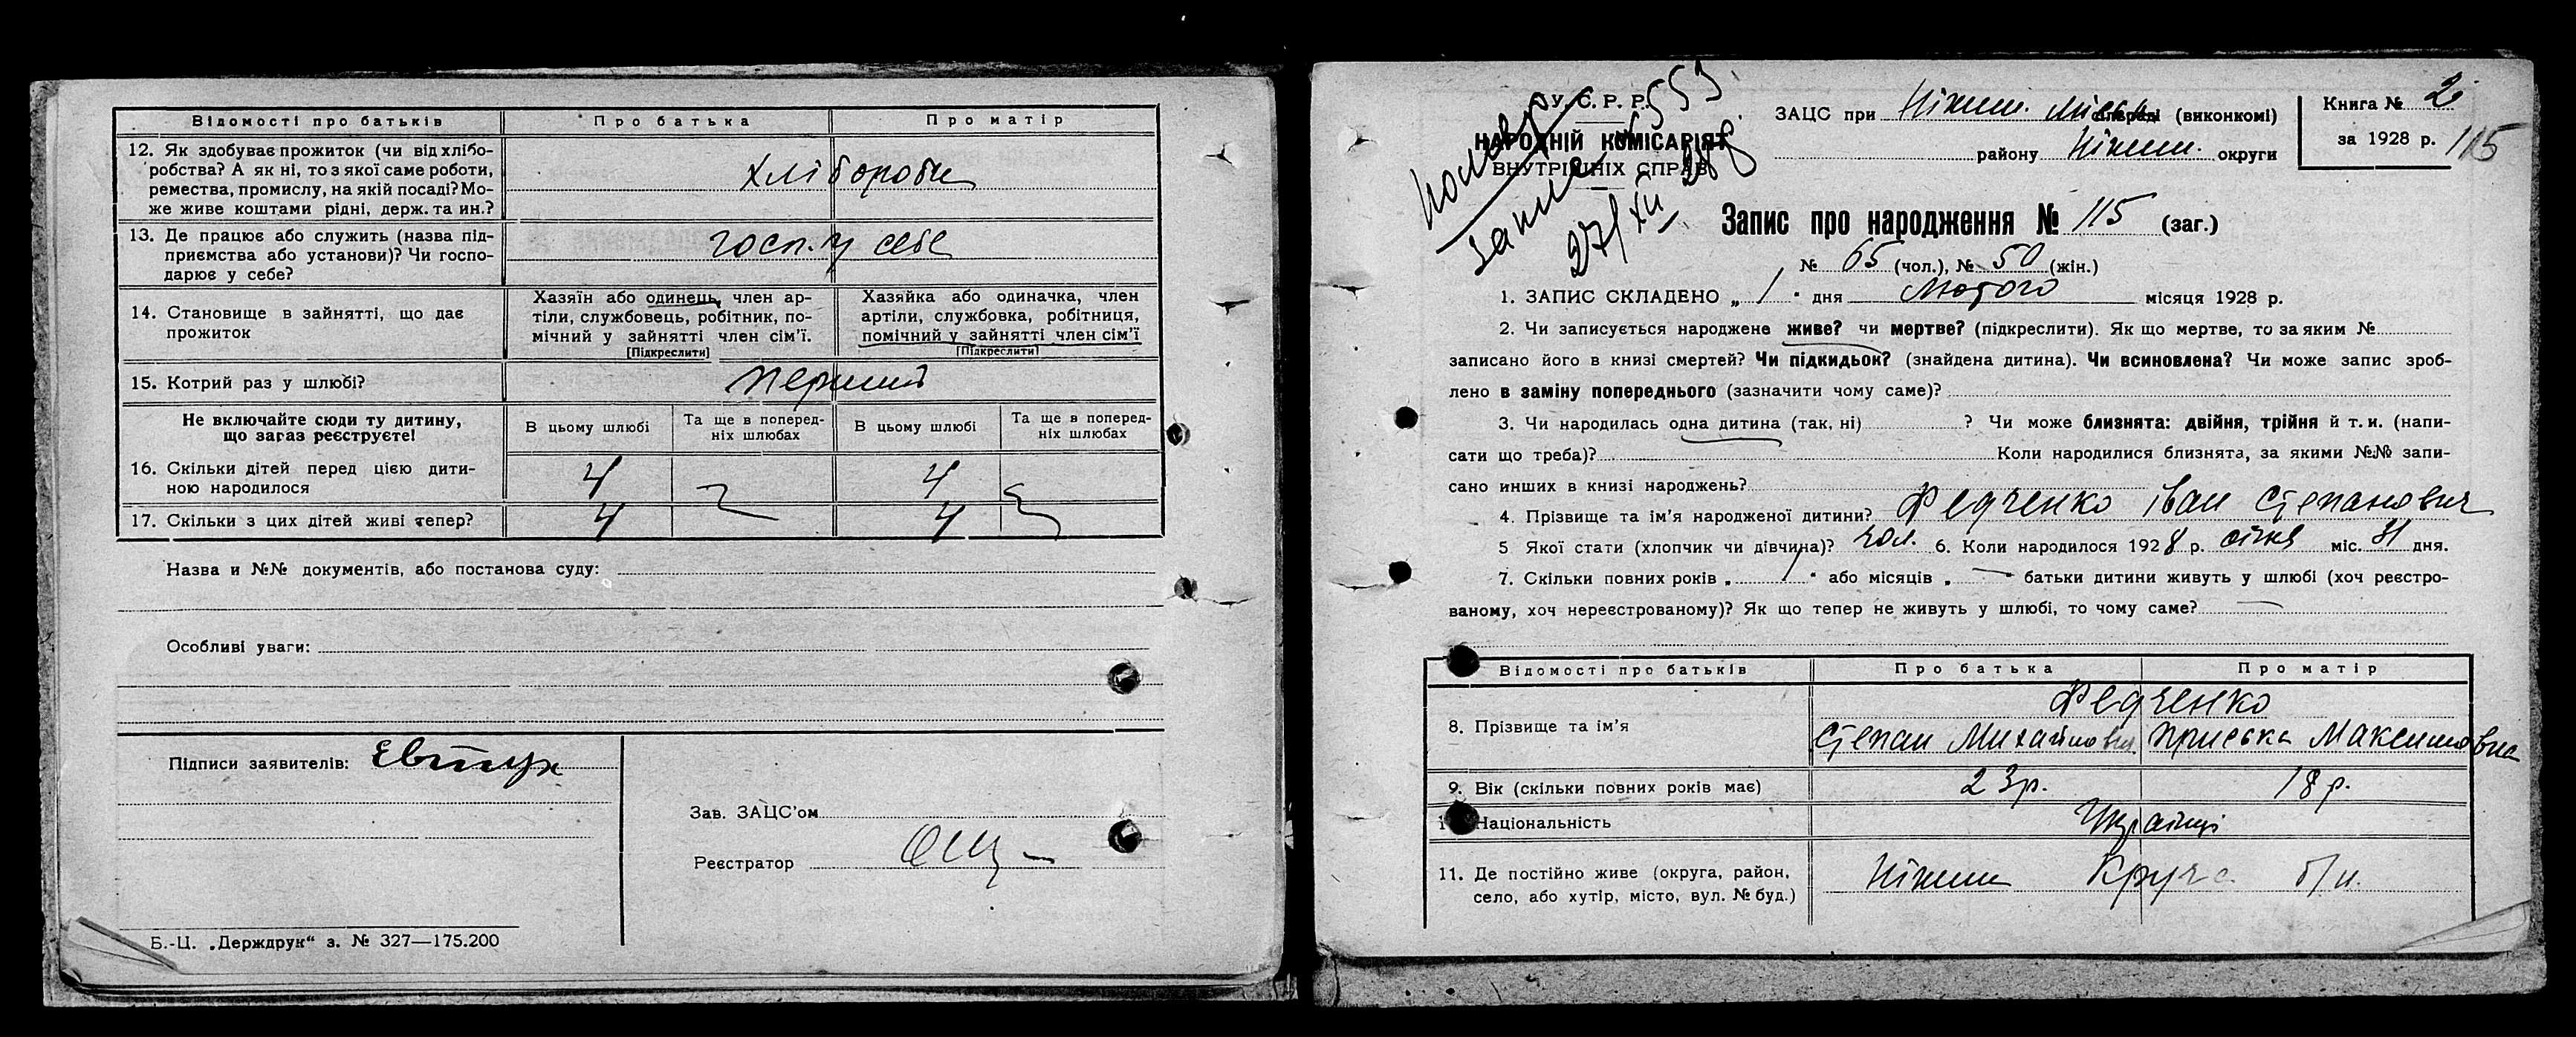 Відомості про батьків Про батька Про матір
12. Як здобуває прожиток (чи від хлібо-
робства? А як ні, то з якої саме роботи,
ремества, промислу, на якій посаді? Мо-
же живе коштами рідні, держ. та ин.?
хлібороби
13. Де працює або служить (назва під-
приємства або установи)? Чи госпо-
дарює у себе?
госп. у себе
14. Становище в зайнятті, що дає
прожиток
Хазяїн або одинець, член ар-
тіли, службовець, робітник, по-
мічний у зайнятті член сім’ї.
[Підкреслити]
Хазяйка або одиначка, член
артіли, службовка, робітниця,
помічний у зайнятті член сім’ї
[Підкреслити]
15. Котрий раз у шлюбі? перший
Не включайте сюди ту дитину,
що зараз реєструєте!
В цьому шлюбі
Та ще в поперед-
ніх шлюбах
В цьому шлюбі
Та ще в поперед-
ніх шлюбах
16. Скільки дітей перед цією дити-
ною народилося
4 4
17. Скільки з цих дітей живі тепер? 4 4
Назва и №№ документів, або постанова суду:
Особливі уваги:
Підписи заявителів: Евтух
Зав. ЗАЦС’ом
Реєстратор
Б.-Ц. „Держдрук“ з. № 327—175.200
У. С. Р. Р.
НАРОДНІЙ КОМІСАРІЯТ
ВНУТРІШНІХ СПРАВ
553
27/XII 28р.
ЗАЦС при Ніжин. міськ раді (виконкомі)
району Ніжин. округи
Книга № 2
за 1928 р.
115
Запис про народження № 115 (заг.)
№ 65 (чол.), № 50 (жін.)
1. ЗАПИС СКЛАДЕНО „ 1 “ дня Лютого місяця 1928 р.
2. Чи записується народжене живе? чи мертве? (підкреслити). Як що мертве, то за яким №
записано його в книзі смертей? Чи підкидьок? (знайдена дитина). Чи всиновлена? Чи може запис зроб-
лено в заміну попереднього (зазначити чому саме)?
3. Чи народилась одна дитина (так, ні) ? Чи може близнята: двійня, трійня й т. и. (напи-
сати що треба)? Коли народилися близнята, за якими №№ запи-
сано инших в книзі народжень?
4. Прізвище та ім’я народженої дитини? Федченко Іван Степанович
5 Якої стати (хлопчик чи дівчина)? чол. 6. Коли народилося 1928 р. січня міс. 31 дня.
7. Скільки повних років „ 1 “ або місяців „ — “ батьки дитини живуть у шлюбі (хоч реєстро-
ваному, хоч нереєстрованому)? Як що тепер не живуть у шлюбі, то чому саме? —
Відомості про батьків Про батька Про матір
Федченко
8. Прізвище та ім’я Степан Михайлович Приська Максимовна
9. Вік (скільки повних років має) 23р. 18 р.
Національність Українці
11. Де постійно живе (округа, район,
село, або хутір, місто, вул. № буд.)
Ніжин Круча б/н.